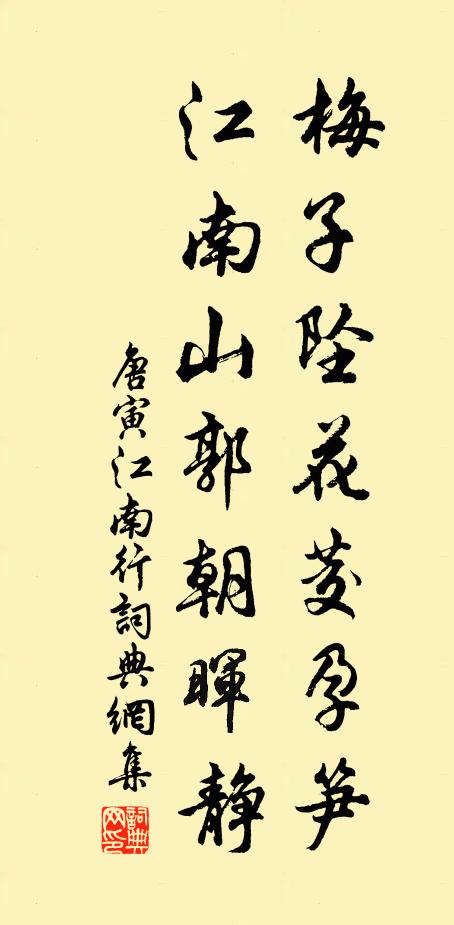 梅子坠花茭孕笋
江南山郭朝暉静
唐寅江南行詞典網集
詞典网印